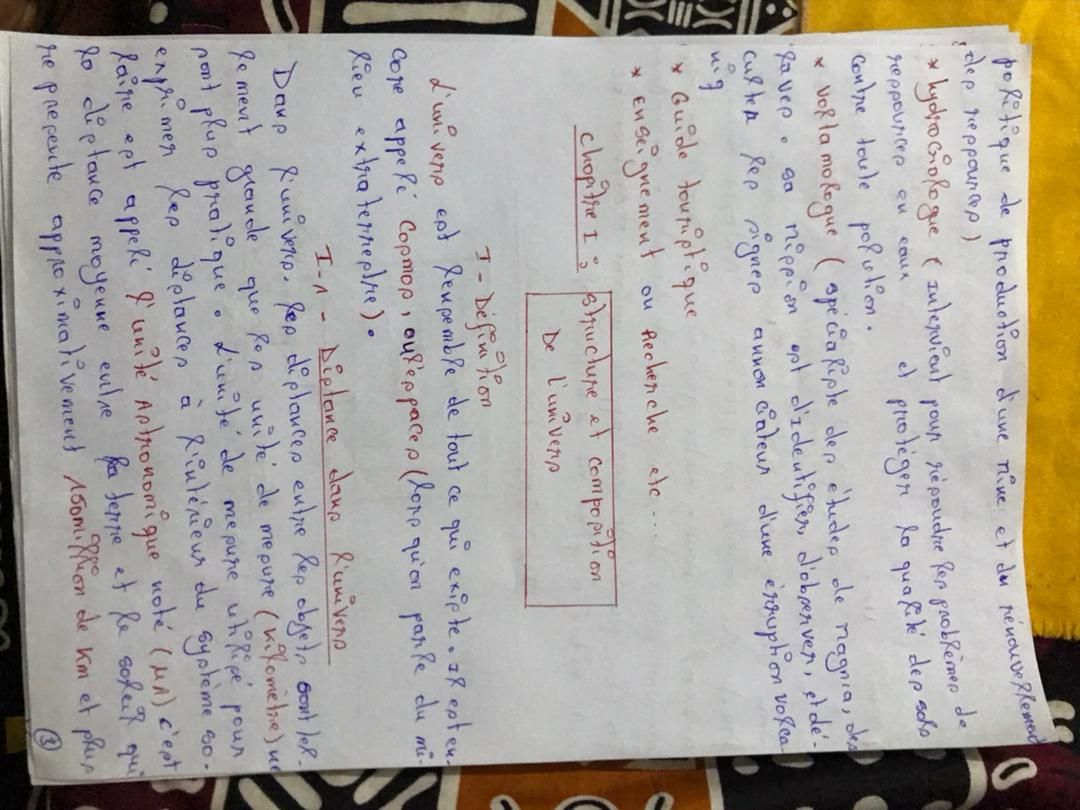 politique de production d'une mine et du rénouvellement
des ressources)
* hydrogéologue (intervient pour résoudre les problèmes de
ressources en eaux et protéger la qualité des sols
contre toute polution.
* voltamologue (spécialiste des études de magma, des
laves. sa mission est d'identifier, d'observer, et dé-
cuter les signes annonciateur d'une érruption volca-
niq
* Guide touristique
* Enseignement ou Recherche etc...
Chapitre I : Structure et composition
De l'univers
I - Définition
L'univers est l'ensemble de tout ce qui existe. Il est en-
core appelé Cosmos, ou l'espaces (lors qu'on parle du mi-
lieu extraterrestre).
I-1 - Distance dans l'univers
Dans l'univers, les distances entre les objets sont tel-
lement grande que les unité de mesure (kilomètre) ne
sont plus pratique. L'unité de mesure utilisé pour
exprimer les distances à l'intérieur du système so-
laire est appelé l'unité Astronomique noté (UA) c'est
la distance moyenne entre la terre et le soleil qui
représente approximativement 150 million de km et plus
3